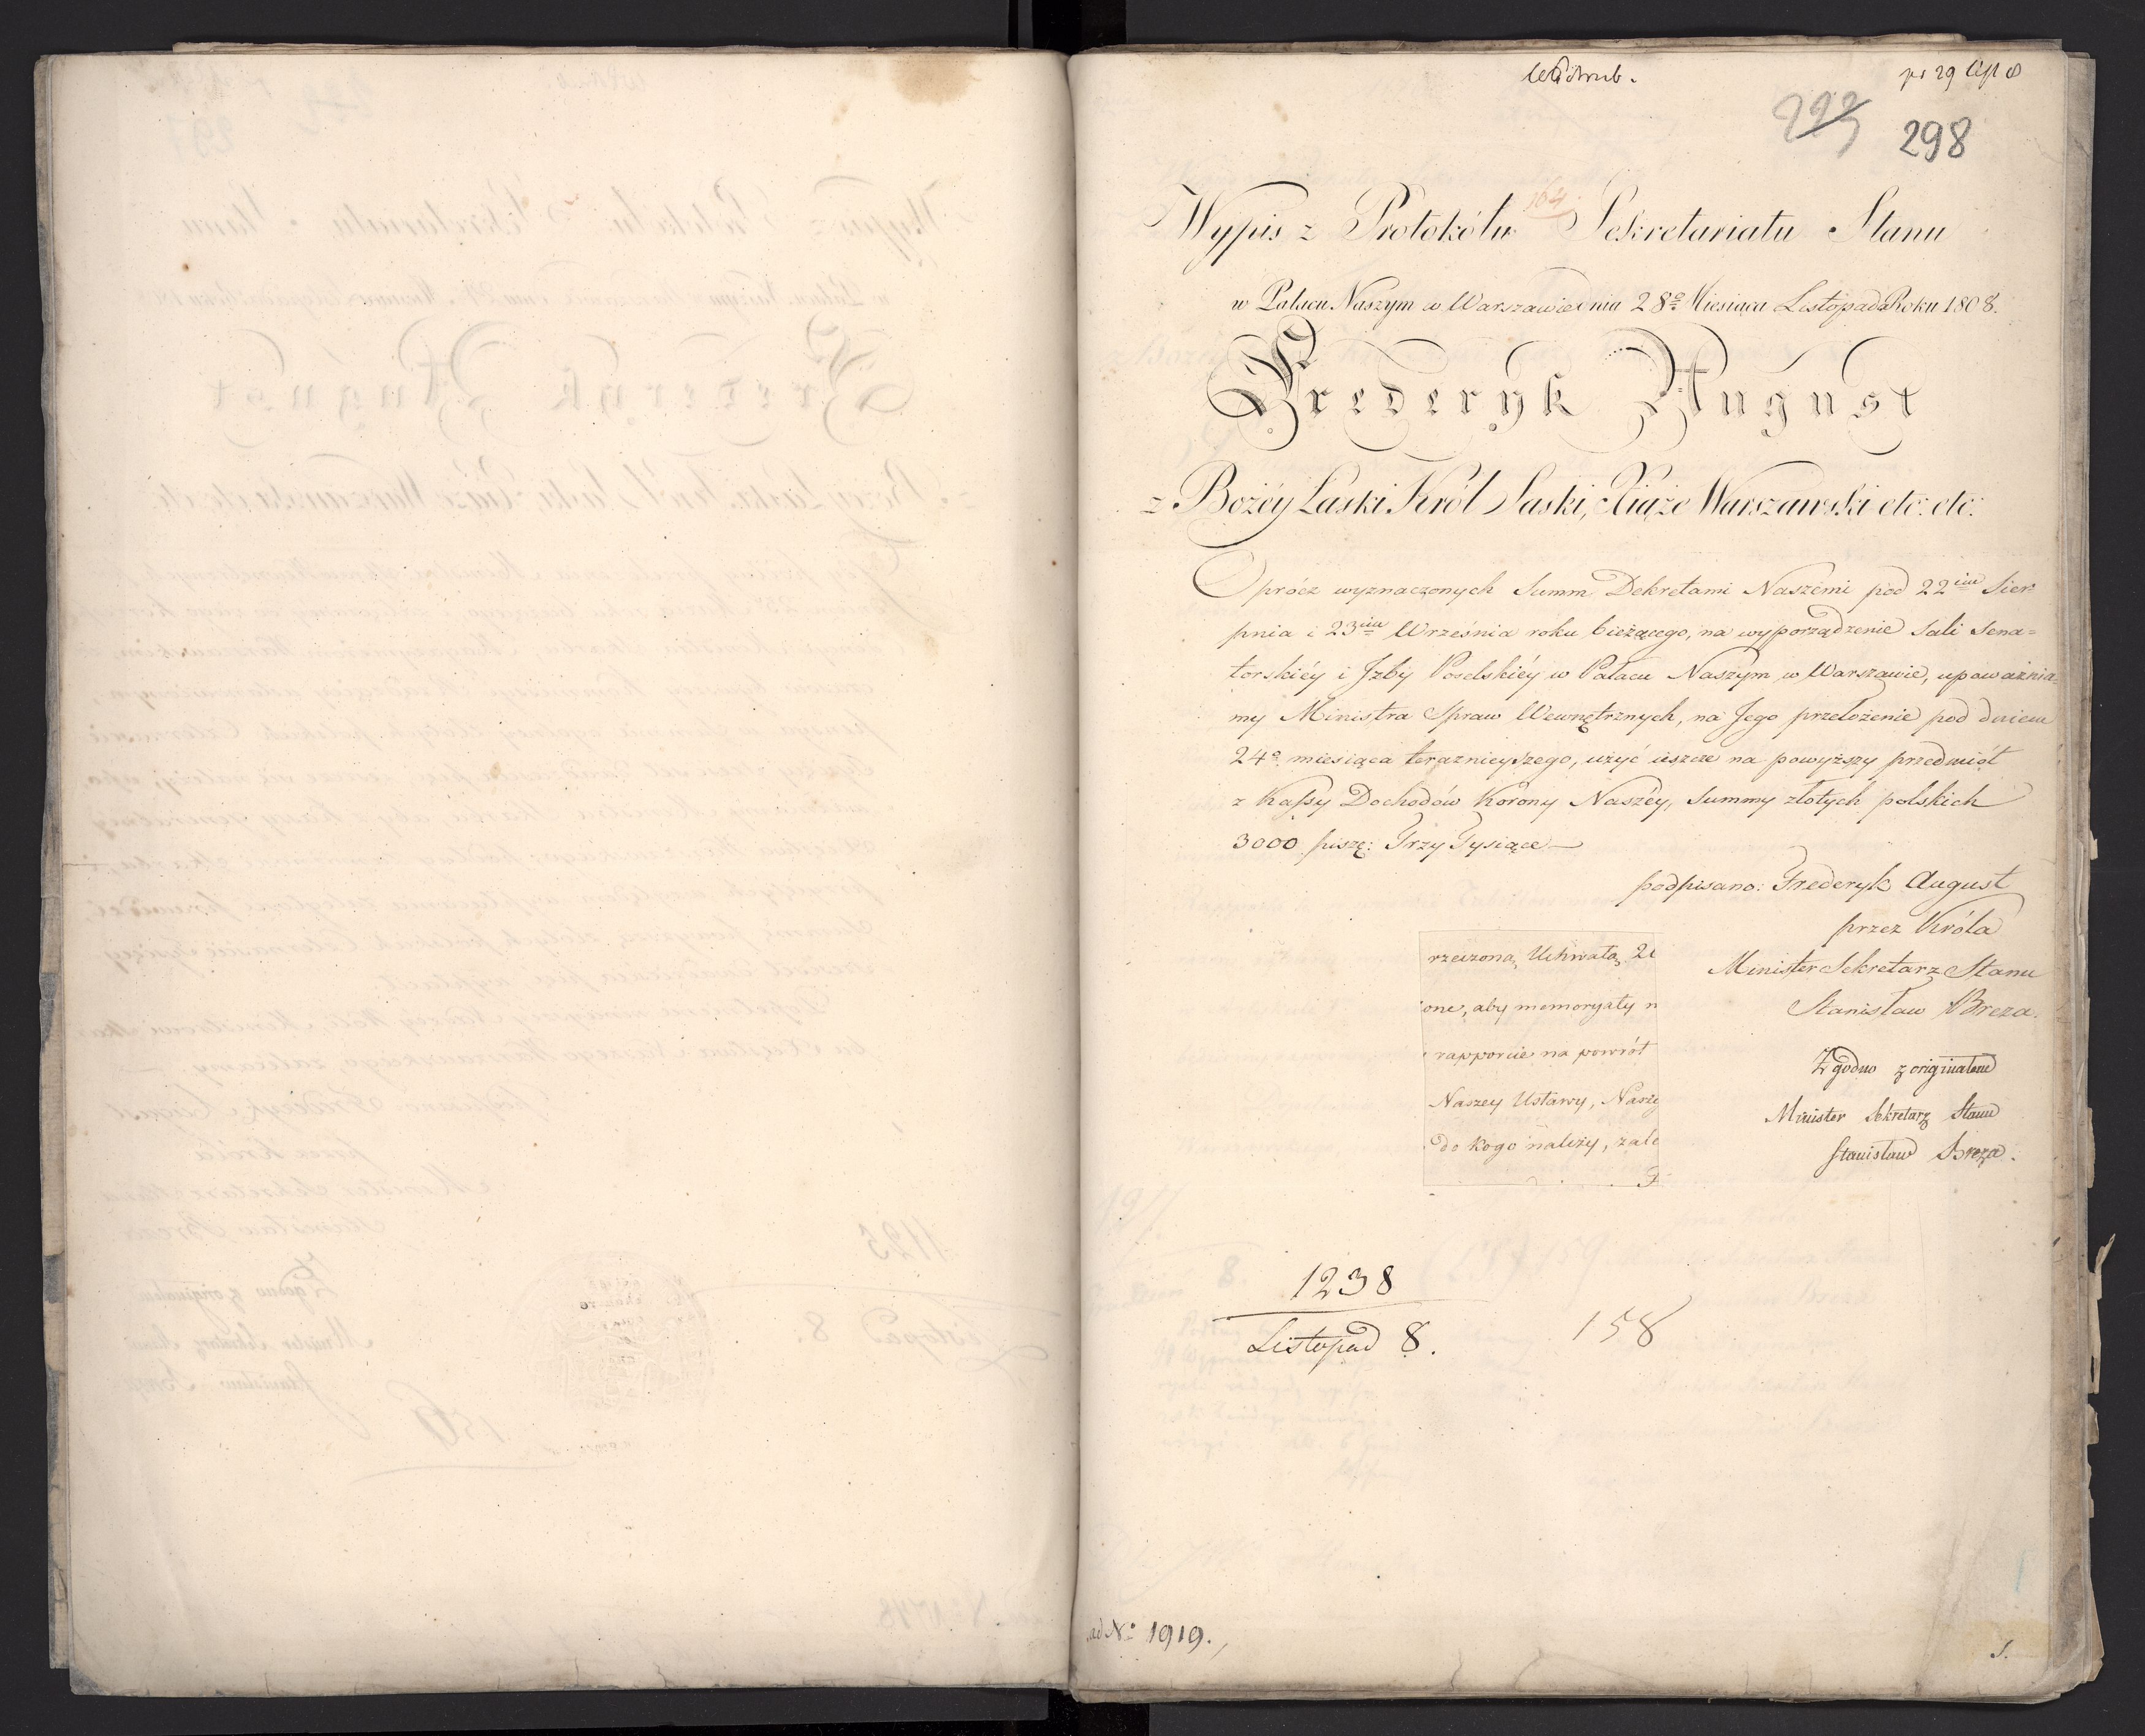 pr 29 
298
164
Wypis z Protokółu Sekretariatu Stanu
w Pałacu Naszym w Warszawie dnia 28º Miesiąca Listopada Roku 1808.
Frederyk August
z Bożéy Łaski Król Saski, Xiąże Warszawski etc: etc:
Oprócz wyznaczonych Summ Dekretami Naszémi pod 22im Sier=
pnia i 23im Września roku bieżącego, na wyporządzenie Sali Sena=
torskiéy i Jzby Poselskiéy w Pałacu Naszym w Warszawie, upoważnia=
my Ministra Spraw Wewnętrznych, na Jego przełożenie pod dniem
24º miesiąca teraznieyszego, użyć ieszcze na powyższy przedmiót
z Kassy Dochodów Korony Naszéy, Summy złotych polskich
3000 piszę: Trzy Tysiące —
podpisano: Frederyk August
przez Króla
Minister Sekretarz Stanu
Stanisław Breza.
Zgodno z originałem
Minister Sekretarz Stanu
Stanisław Breza.
rzeczoną Uchwałą 2
one, aby memoryały n
rapporcie na powrót
Naszey Ustawy, Nasz
do kogo należy, zale
1238
Listopad 8.
158
ad Nº 1919.